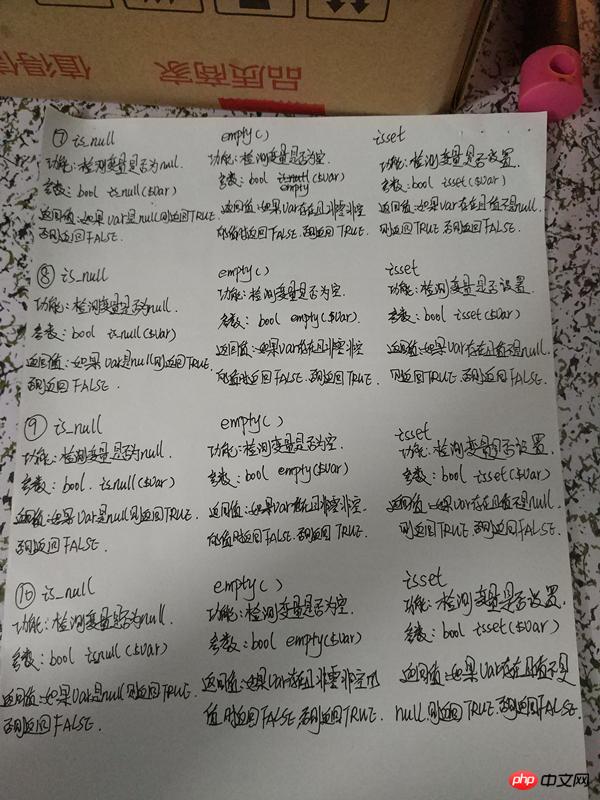 值得信
品质商家
⑦ is_null
功能:检测变量是否为null.
参数:bool is_null($var)
返回值:如果var是null则返回TRUE.
否则返回FALSE.
empty()
功能:检测变量是否为空.
参数:bool is_null($var)
empty
返回值:如果var存在且非零非空
的值时返回FALSE.否则返回TRUE.
isset
功能:检测变量是否设置.
参数:bool isset($var)
返回值:如果var存在且值不是null.
则返回TRUE 否则返回FALSE.
⑧ is_null
功能:检测变量是否为null.
参数:bool is_null($var)
返回值:如果var是null则返回TRUE.
否则返回FALSE.
empty()
功能:检测变量是否为空.
参数:bool empty($var)
返回值:如果var存在且非零非空
的值时返回FALSE.否则返回TRUE.
isset
功能:检测变量是否设置.
参数:bool isset($var)
返回值:如果var存在且值不是null.
则返回TRUE.否则返回FALSE.
⑨ is_null
功能:检测变量是否为null.
参数:bool.is_null($var)
返回值:如果var是null则返回TRUE.
否则返回FALSE.
empty()
功能:检测变量是否为空.
参数:bool empty($var)
返回值:如果var存在且非零非空
的值时返回FALSE.否则返回TRUE.
isset
功能:检测变量是否设置.
参数:bool isset($var)
返回值:如果var存在且值不是null.
则返回TRUE.否则返回FALSE.
⑩ is_null
功能:检测变量是否为null.
参数:bool isnull($var)
返回值:如果var是null则返回TRUE.
否则返回FALSE.
empty()
功能:检测变量是否为空.
参数:bool empty($var)
返回值:如果var存在且非零非空的
值时返回FALSE.否则返回TRUE.
isset
功能:检测变量是否设置.
参数:bool isset($var)
返回值:如果var存在且值不是
null.则返回TRUE.否则返回FALSE.
php 中文网